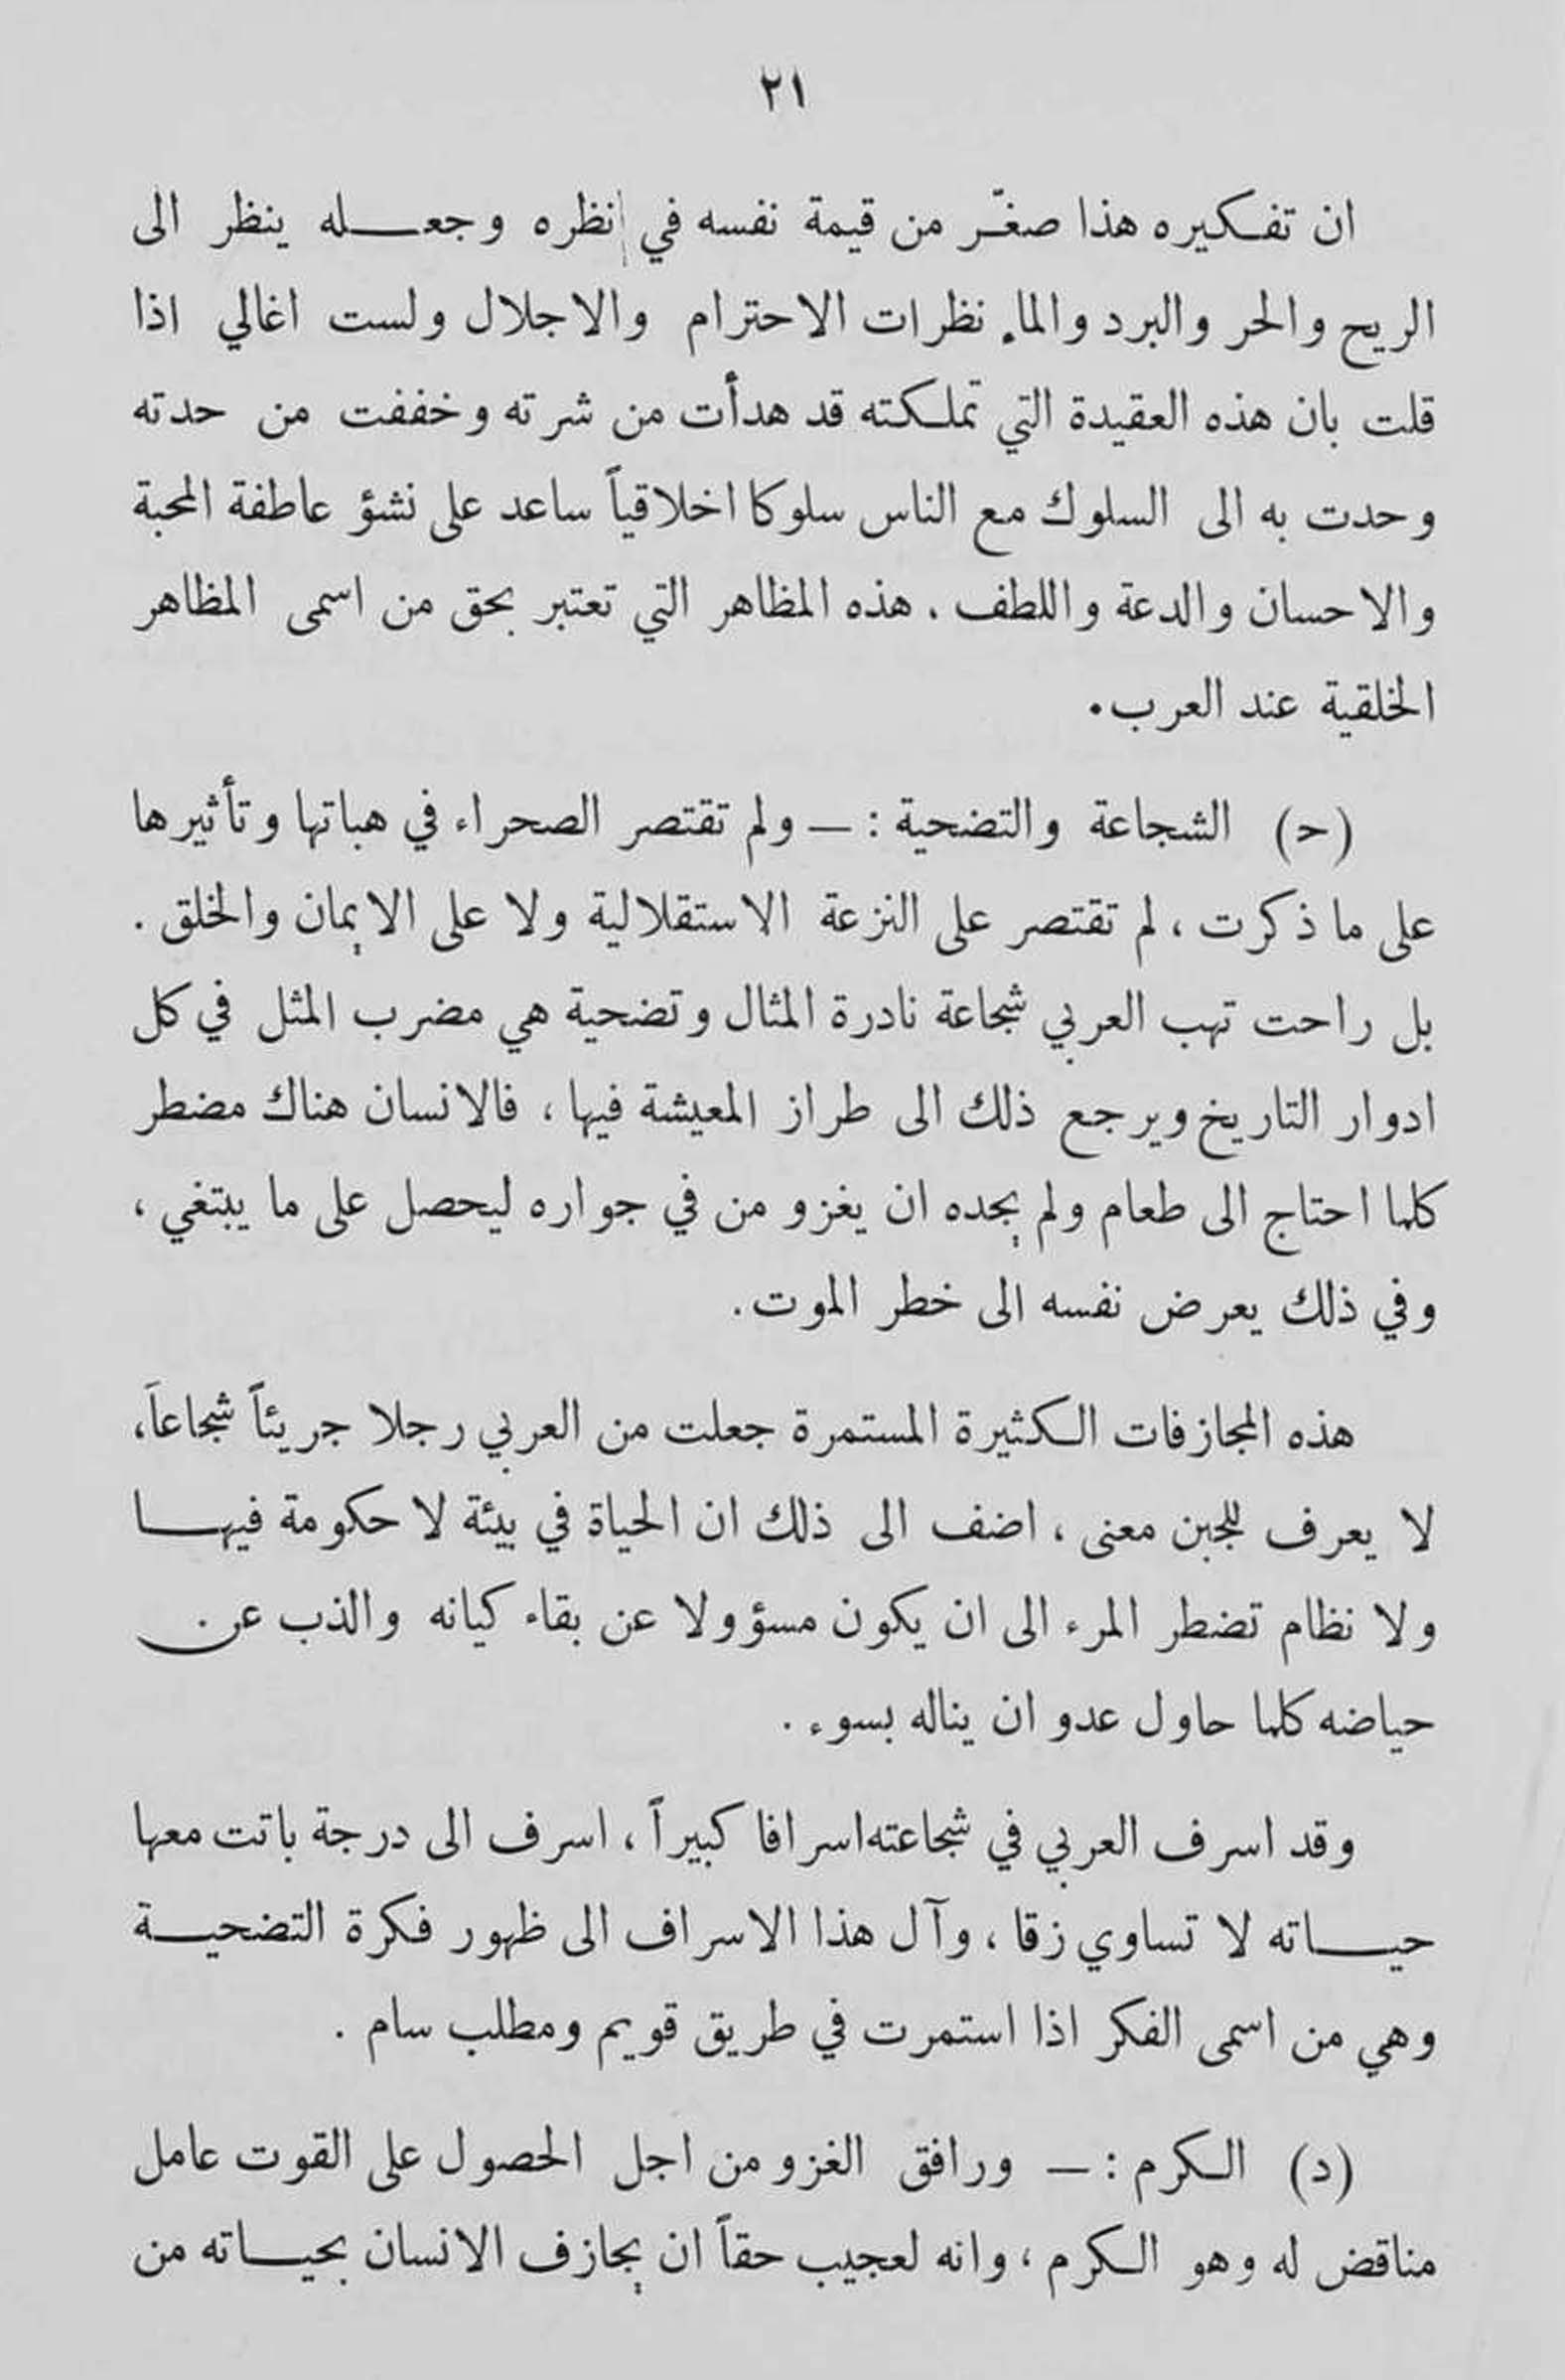 ٢١
ان تفكيره هذا صغّر من قيمة نفسه في نظره وجعله ينظر الى
الريح والحر والبرد والماء نظرات الاحترام والاجلال ولست اغالي اذا
قلت بان هذه العقيدة التي تملكته قد هدأت من شرته وخففت من حدته
وحدت به الى السلوك مع الناس سلوكا اخلاقياً ساعد على نشؤ عاطفة المحبة
والاحسان والدعة واللطف . هذه المظاهر التي تعتبر بحق من اسمى المظاهر
الخلقية عند العرب.
(ح) الشجاعة والتضحية : — ولم تقتصر الصحراء في هباتها وتأثيرها
على ما ذكرت ، لم تقتصر على النزعة الاستقلالية ولا على الايمان والخلق .
بل راحت تهب العربي شجاعة نادرة المثال وتضحية هي مضرب المثل في كل
ادوار التاريخ ويرجع ذلك الى طراز المعيشة فيها ، فالانسان هناك مضطر
كلما احتاج الى طعام ولم يجده ان يغزو من في جواره ليحصل على ما يبتغي ،
وفي ذلك يعرض نفسه الى خطر الموت .
هذه المجازفات الكثيرة المستمرة جعلت من العربي رجلا جريئاً شجاعاً ،
لا يعرف للجبن معنى ، اضف الى ذلك ان الحياة في بيئة لا حكومة فيها
ولا نظام تضطر المرء الى ان يكون مسؤولا عن بقاء كيانه والذب عن
حياضه كلما حاول عدو ان يناله بسوء .
وقد اسرف العربي في شجاعته اسرافا كبيراً ، اسرف الى درجة باتت معها
حياته لا تساوي زقا ، وآل هذا الاسراف الى ظهور فكرة التضحية
وهي من اسمى الفكر اذا استمرت في طريق قويم ومطلب سام .
(د) الكرم : — ورافق الغزو من اجل الحصول على القوت عامل
مناقض له وهو الكرم ، وانه لعجيب حقاً ان يجازف الانسان بحياته من